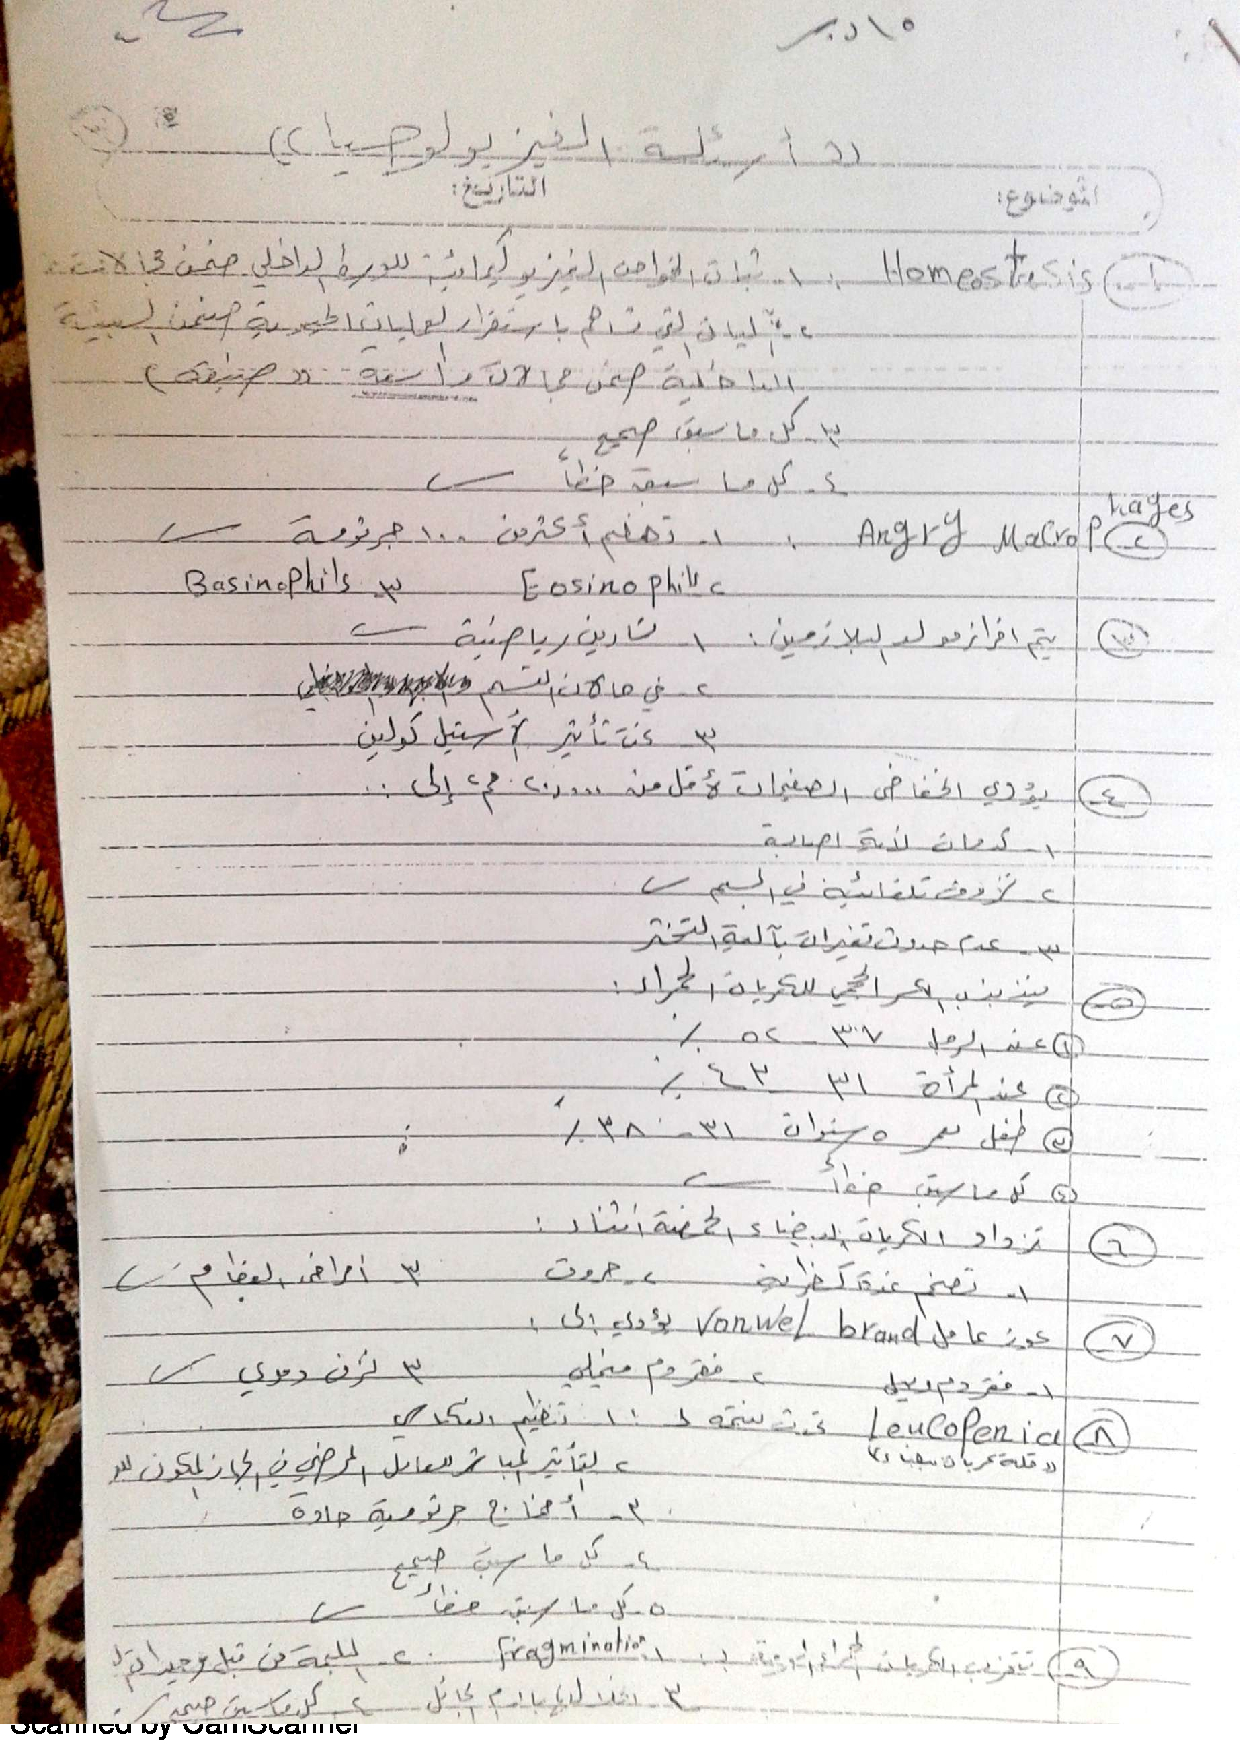 (( أسئلة الفيزيولوجيا ))
الموضوع: التاريخ:
١- Homeostasis : ١- ثبات الخواص الفيزيوكيميائية للوسط الداخلي ضمن مجالات
٢- آليات التي تساهم باستقرار العمليات الحيوية ضمن البيئة
الداخلية ضمن مجالات واسعة (( ضيقة ))
٣- كل ما سبق صحيح
٤- كل ما سبق خطأ
٢ Angry Macrophages : ١- تهضم أكثر من ١٠٠ جرثومة
٢ Eosinophils ٣- Basinophils
٣ يتم افراز مولد البلازمين : ١- تمارين رياضية
٢- في حالات التسمم
٣- عند تأثير الأستيل كولين
٤ يؤدي انخفاض الصفيحات لأقل من ٢٠,٠٠٠ م٢ إلى :
١- كدمات لأية اصابة
٢ نزوف تلقائية في الجسم
٣- عدم حدوث تغيرات بآلية التخثر
٥ يتذبذب الكسر الحجمي للكريات الحمراء :
١ عند الرجل ٣٧ - ٥٢ ٪
٢ عند المرأة ٣١ ٤٣ ٪
٣ طفل بعمر ٥ سنوات ٣١ - ٣٨ ٪
٤ كل ما سبق خطأ
٦ تزداد الكريات البيضاء الحمضة أثناء :
١- تضخم غدة ٢- حروق ٣ أمراض العظام
٧ عوز عامل Vonwel brand يؤدي إلى :
١- فقر دم ٢- فقر دم منجلي ٣ نزف دموي
٨ Leucopenia تحدث نتيجة لـ : ١- تنظيم
(( قلة كريات بيضاء ))
٢- التأثير المباشر للعامل المرضي في الجهاز المكون للدم
٣- أخماج جرثومية حادة
٤- كل ما سبق صحيح
٥- كل ما سبق خطأ
٩ تتخرب الكريات الحمراء الهرمة بـ : ١- Fragmination ٢- البلعمة من قبل
٣- ٤- كل ما سبق صحيح
Scanned by CamScanner